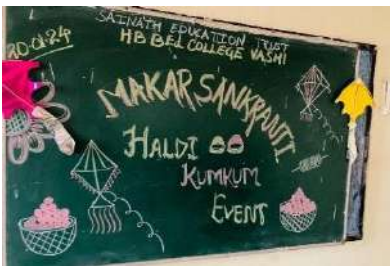 SAINATH EDUCATION TRUST
HB BED COLLEGE VASHI
20-01-24
MAKAR SANKRANTI
HALDI
KUMKUM
EVENT